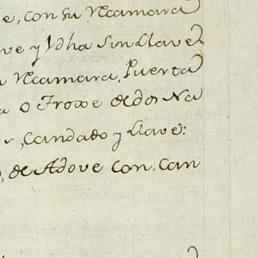 e, con su Recamara
ve y Vha Sin Llave
Recamara, Puerta
a o Troxe de dos Na
, Candado y Llave:
, de Adove con. Can